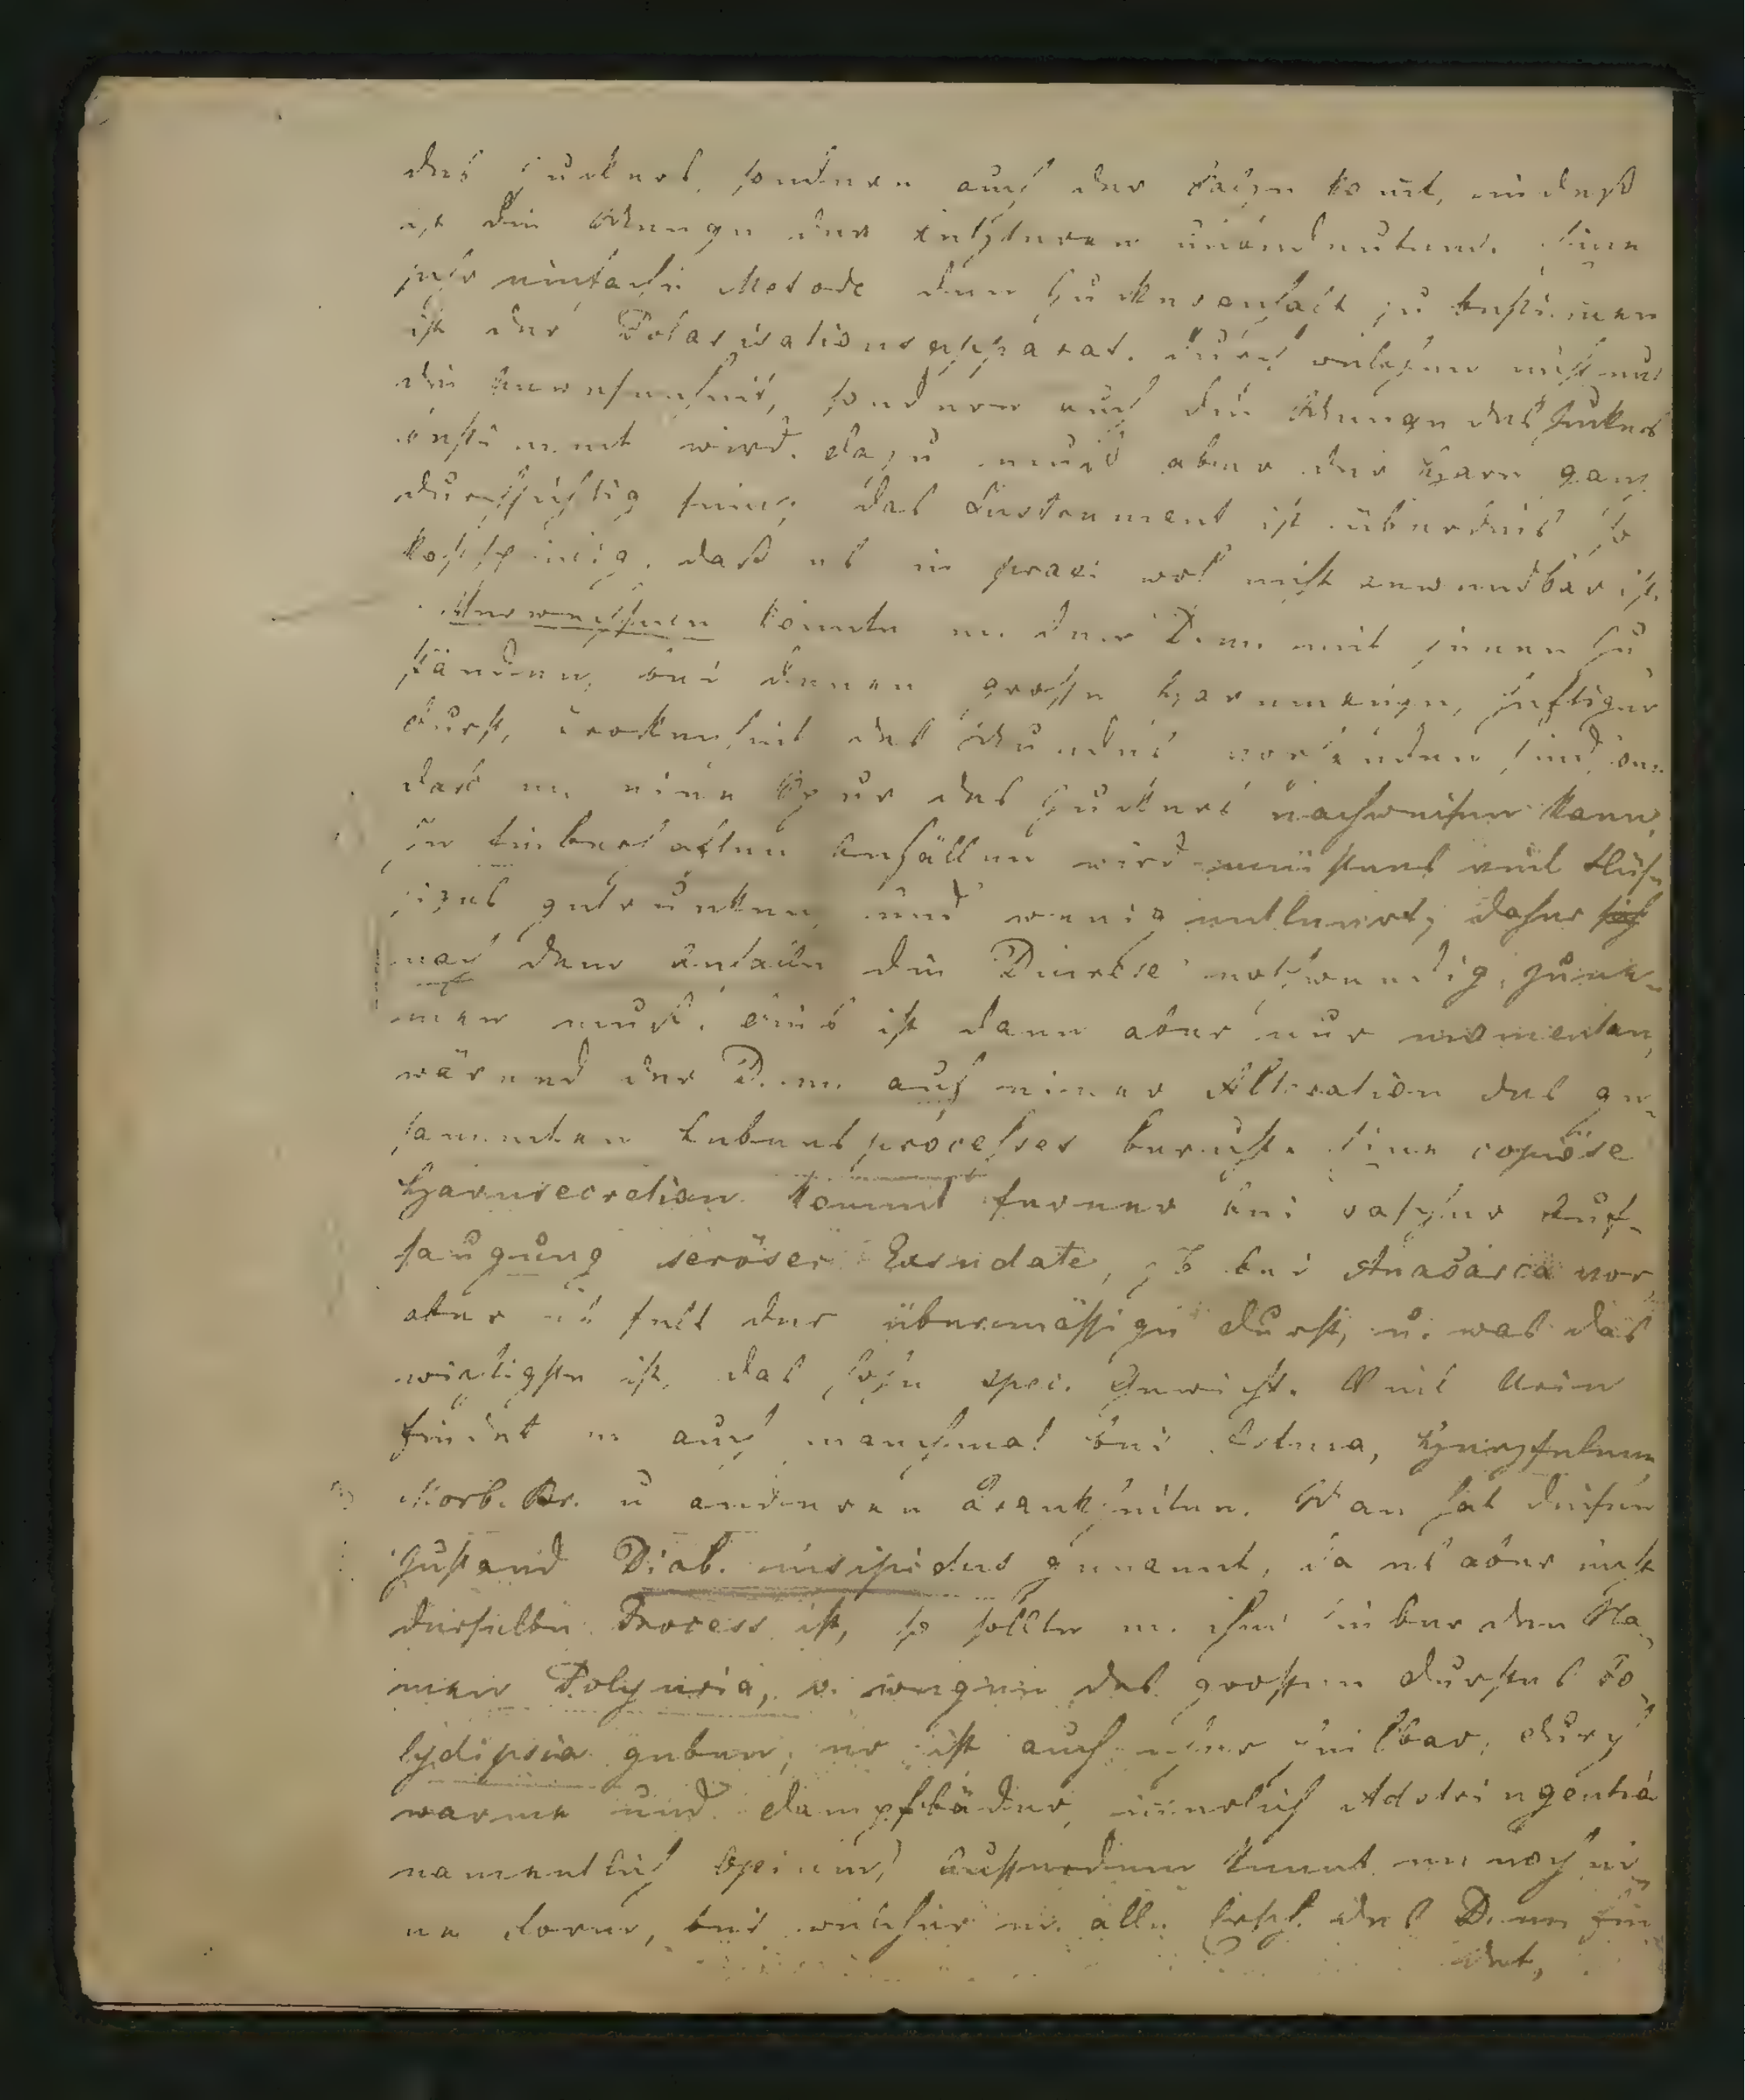 des Zuckers, sondern auch der Salze komt, indeß
ist die Menge der letzteren unbedeutend. Eine
sehr einfache Metode den Zuckergehalt zu bestimmen
ist der Polarisationsapparat. durch welchen nicht nur
die Anwesenheit, sondern auch die Menge des Zuckers
bestimmt wird. dazu muß aber der Harn ganz
durchsichtig sein; das Instrument ist überdies so
kostspielig, daß es in praxi wol nicht anwendbar ist.
Verwechseln könnte m. den D. m. mit jenen Zu
ständen, bei denen große Harnmengen, heftiger
durst, Trockenheit des Mundes vorhanden sind, one
daß m. eine Spur des Zuckers nachweisen kann.
In fieberhaften Anfällen wird meistens viel Flüs
siges getrunken und wenig entleert, daher
nach dem Anfalle die Diurese notwendig zune-
men muß. dies ist dann aber nur momentan,
wärend der D. m. auf einer Alteration des ge-
sammten Lebensprocesses beruht. Eine copiöse
Harnsecretion kommt ferner bei rascher Auf-
saugung seröser Exsudate, zb bei Anasarca vor
aber es felt der übermäßige durst, u. was das
wichtigste ist, das hohe spec. Gewicht. Viel Urin
findet m auch manchmal bei Astma, Herzfelern
Morb. Br. u anderen Krankheiten. Man hat diesen
Zustand Diab. insipidus genannt, da es aber nicht
derselbe Process ist, so sollte m. ihm lieber den Na
men Polyuria, o. wegen des großen durstes Po
lydipsia geben, er ist auch eher heilbar, durch
warme und dampfbäder, innerlich Adstringentia
namentlich Opium; Außerdem kennt m noch ei
ne Form, bei welcher m. alle Ersch. des D. m. fin
det,